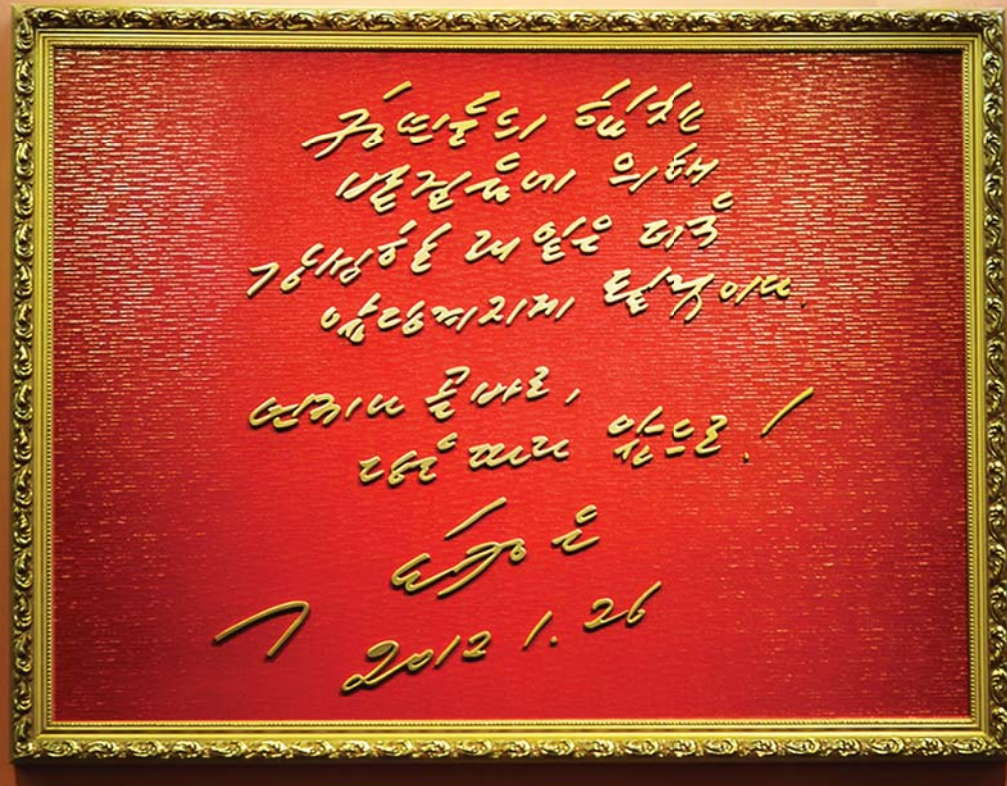 청년들의 힘찬
발걸음에 의해
강성할 래일은 더욱
앞당겨지게 될것이다.
언제나 곧바로,
당을 따라 앞으로!
김정은
2012 1. 26